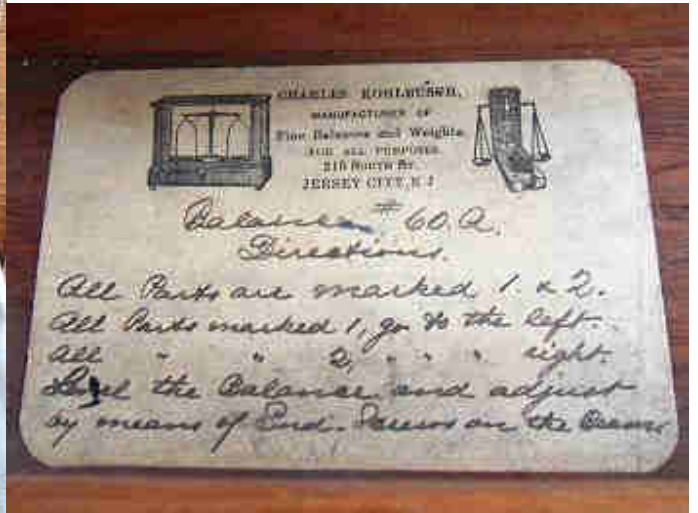 CHARLES KOHLBUSCH,
MANUFACTURER OF
Fine Balances and Weights
FOR ALL PURPOSES.
JERSEY CITY, N J
Balance # 60, A.
Directions.
All Parts are marked 1. & 2.
All Parts marked 1, go to the left.
All " " 2, " " " right.
Level the Balance and adjust
by means of End-Screws on the Beam